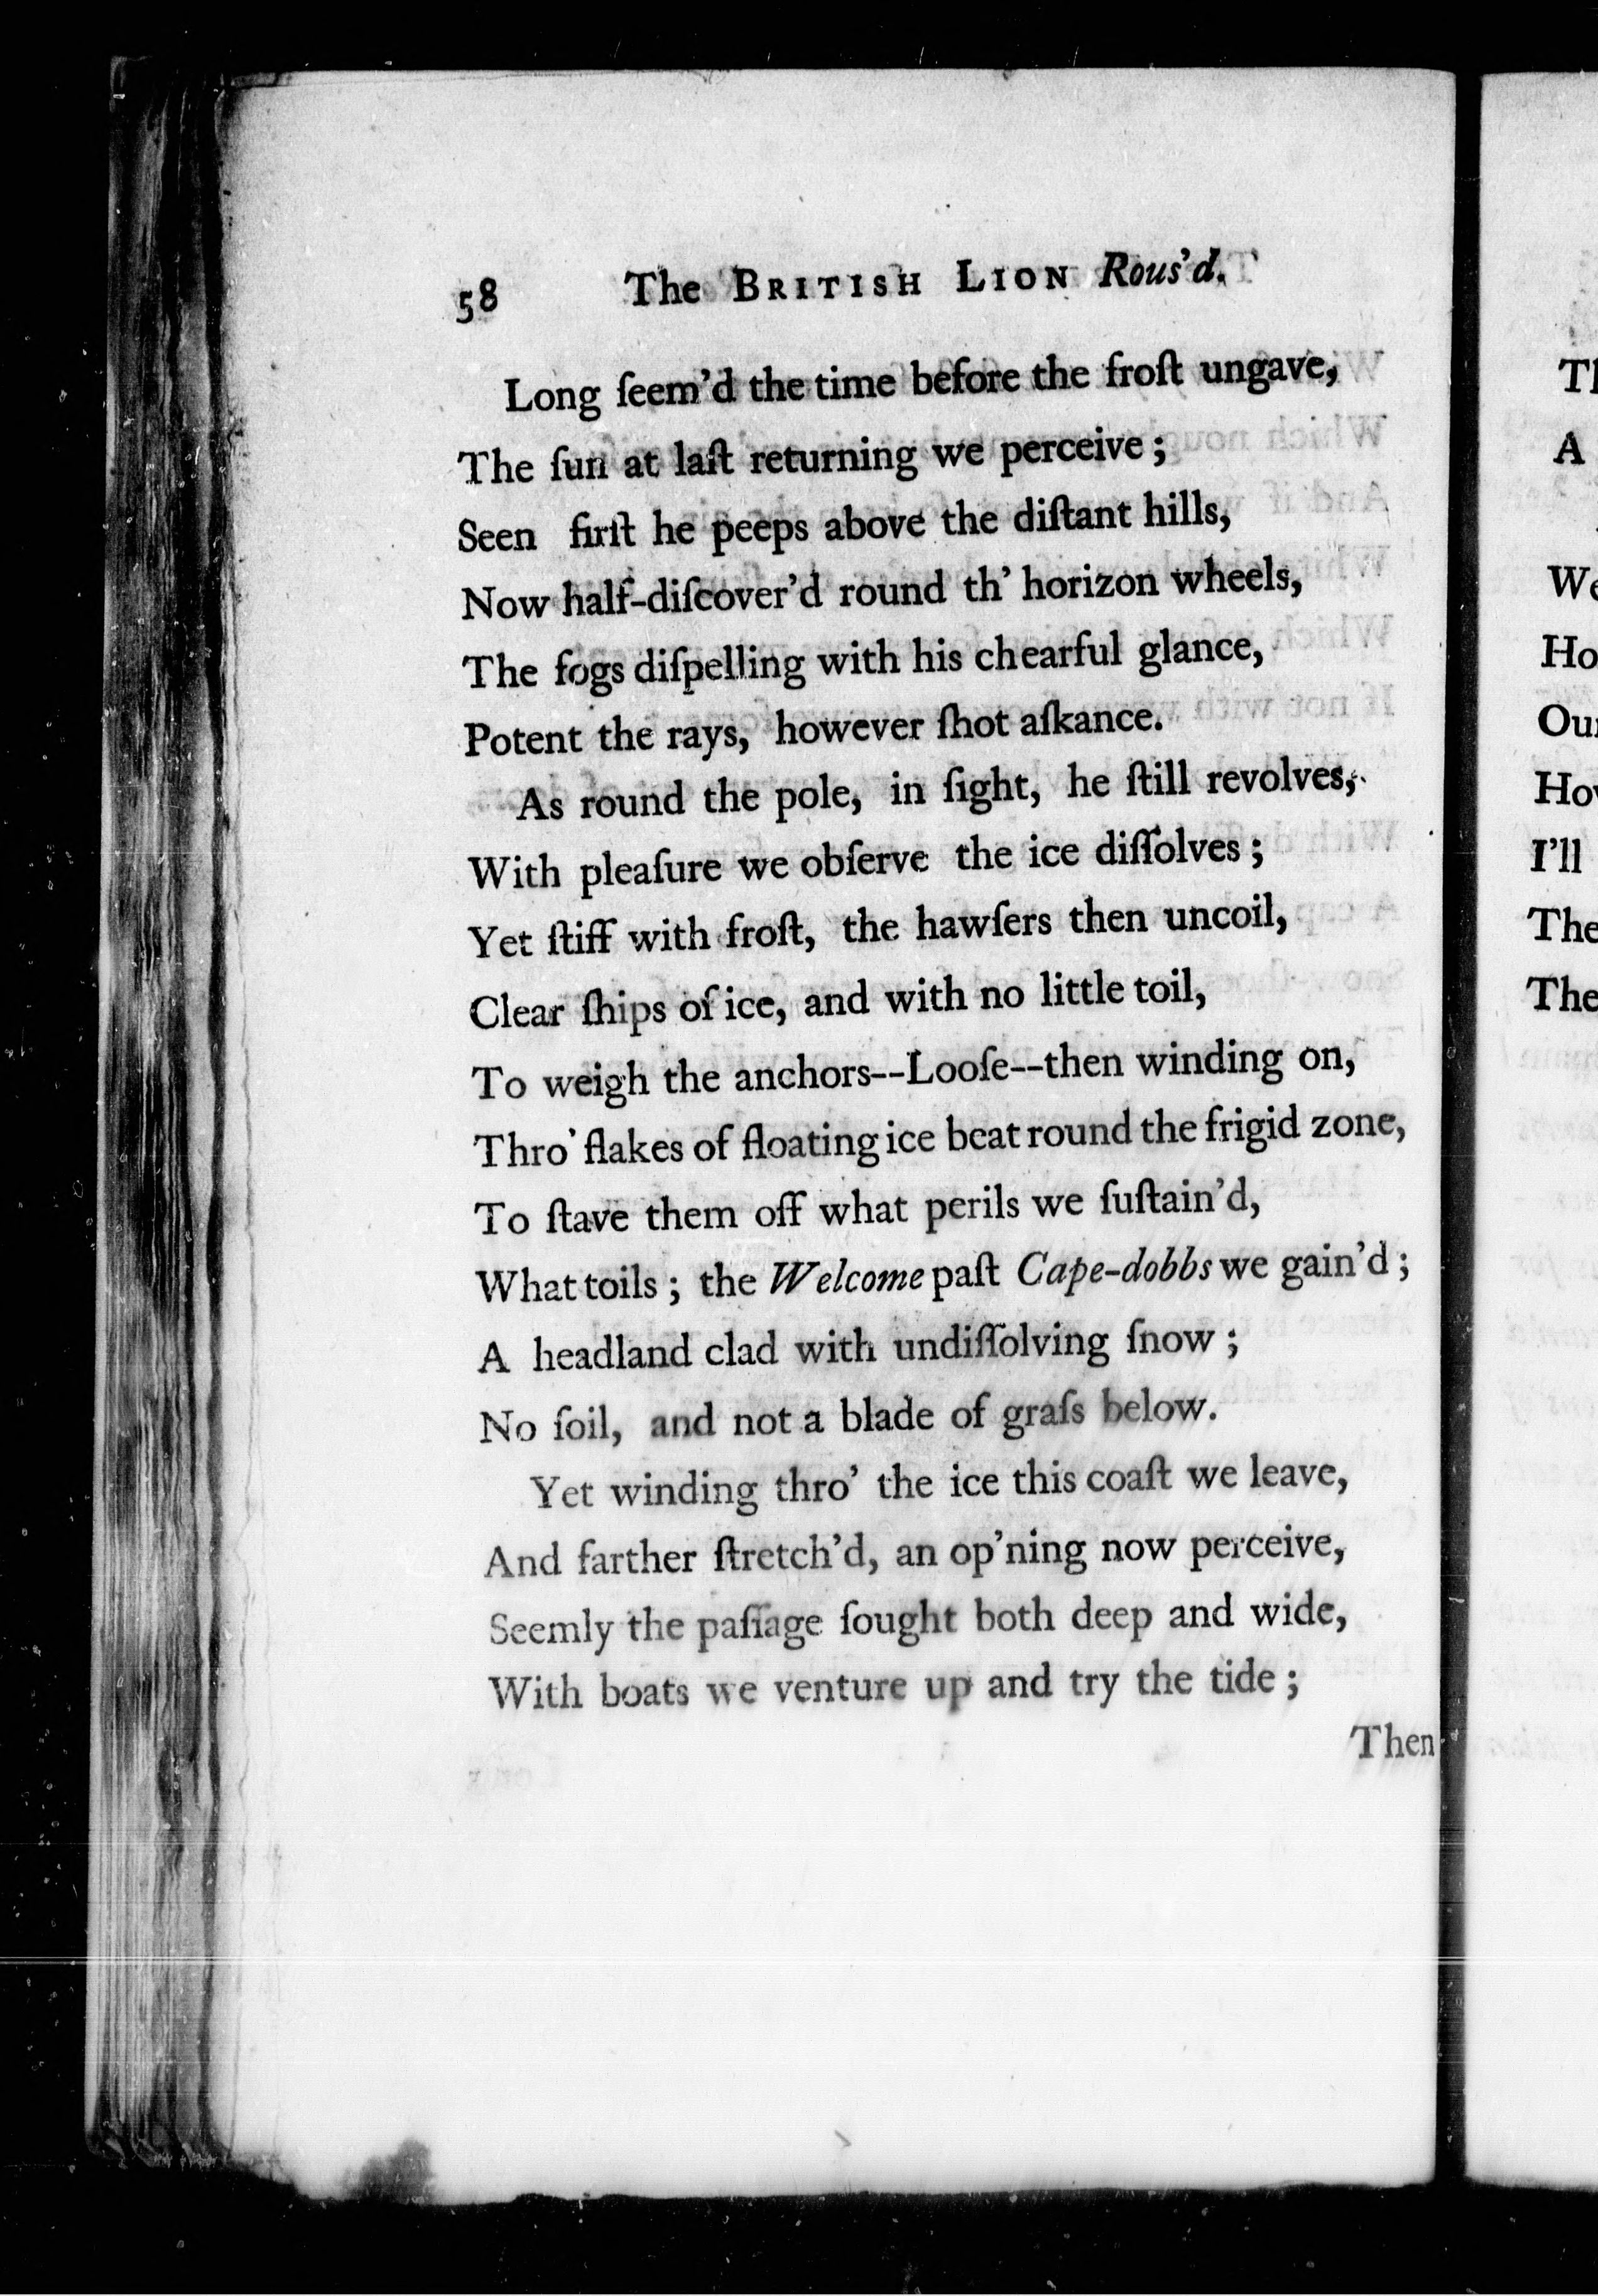 58 The BRITISH LION Rous'd.
Long ſeem'd the time before the froſt ungave,
The ſun at laſt returning we perceive;
Seen firſt he peeps above the diſtant hills,
Now half-diſcover'd round th' horizon wheels,
The fogs diſpelling with his chearful glance,
Potent the rays, however ſhot aſkance.
As round the pole, in ſight, he ſtill revolves,
With pleaſure we obſerve the ice diſſolves;
Yet ſtiff with froſt, the hawſers then uncoil,
Clear ſhips of ice, and with no little toil,
To weigh the anchors--Looſe--then winding on,
Thro' flakes of floating ice beat round the frigid zone,
To ſtave them off what perils we ſuſtain'd,
What toils; the Welcome paſt Cape-dobbs we gain'd;
A headland clad with undiſſolving ſnow;
No ſoil, and not a blade of graſs below.
Yet winding thro' the ice this coaſt we leave,
And farther ſtretch'd, an op'ning now perceive,
Seemly the paſſage ſought both deep and wide,
With boats we venture up and try the tide;
Then
A
I'll